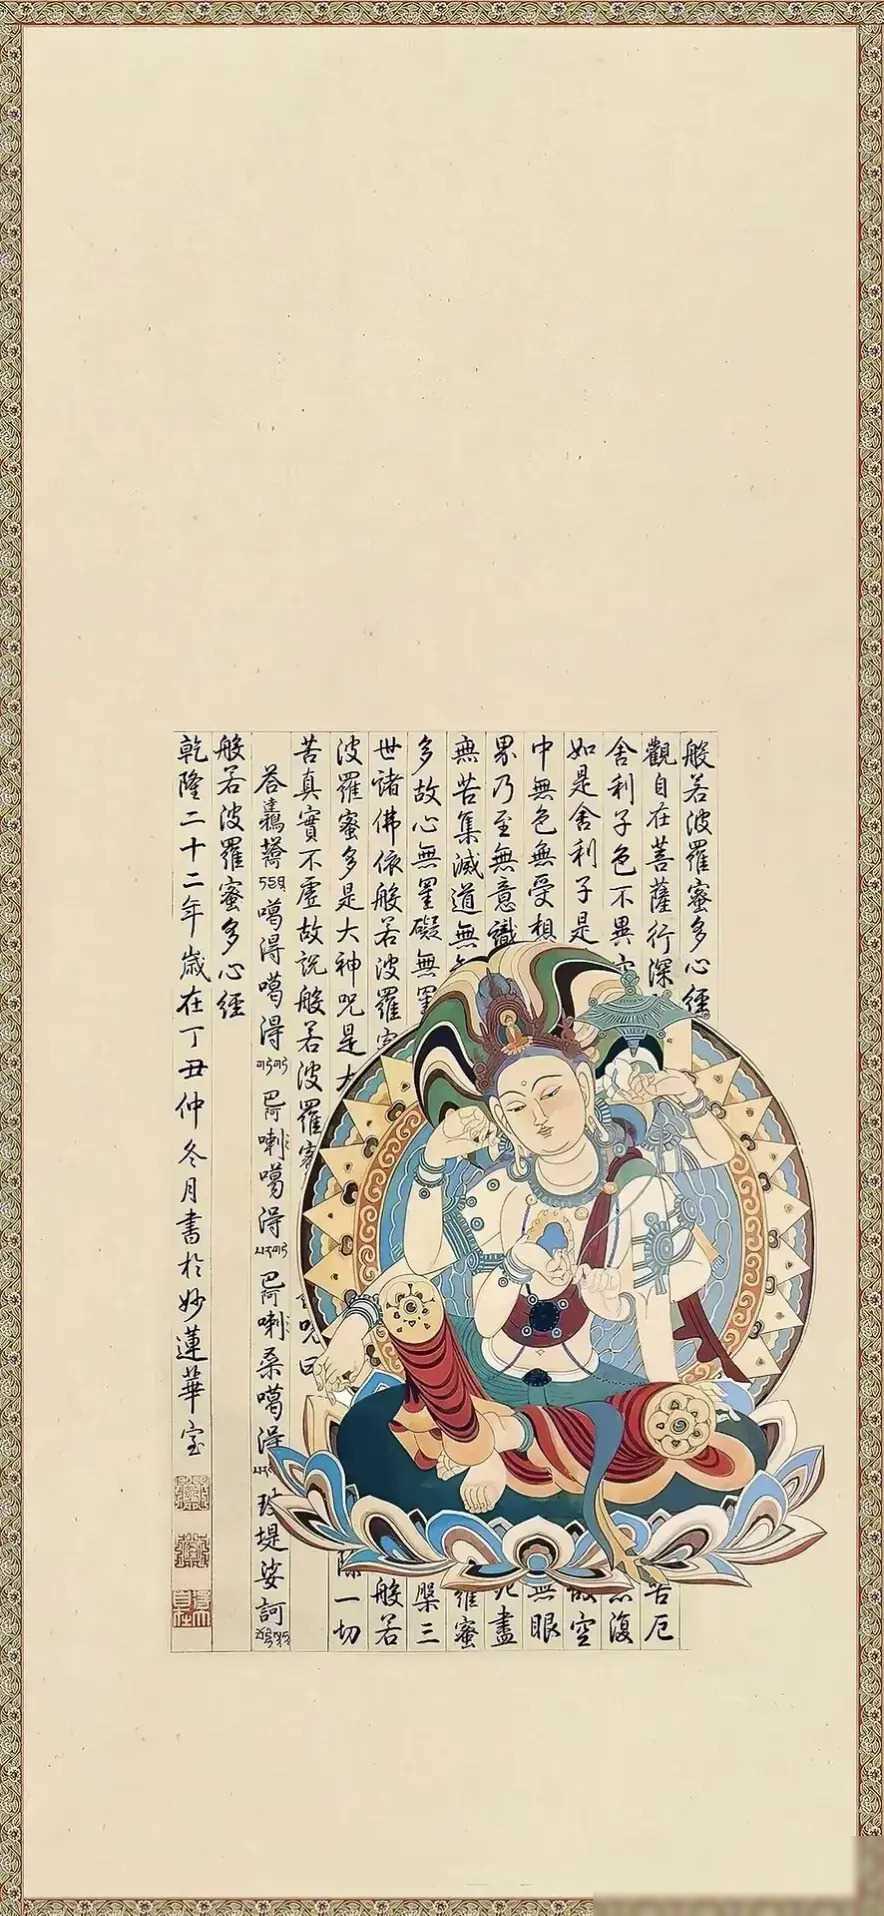 般若波羅蜜多心經
觀自在菩薩行深 苦厄
舍利子色不異 復
如是舍利子是 故空
中無色無受想 無眼
界乃至無意識 死盡
無苦集滅道無 羅蜜
多故心無罣礙無罣 槃三
世諸佛依般若波羅 般若
波羅蜜多是大神呪是大 除一切
苦真實不虛故說般若波羅蜜 呪曰
噶得噶得 巴阿喇噶得 巴阿喇桑噶得 玻堤娑訶
般若波羅蜜多心經
乾隆二十二年歲在丁丑仲冬月書於妙蓮華室